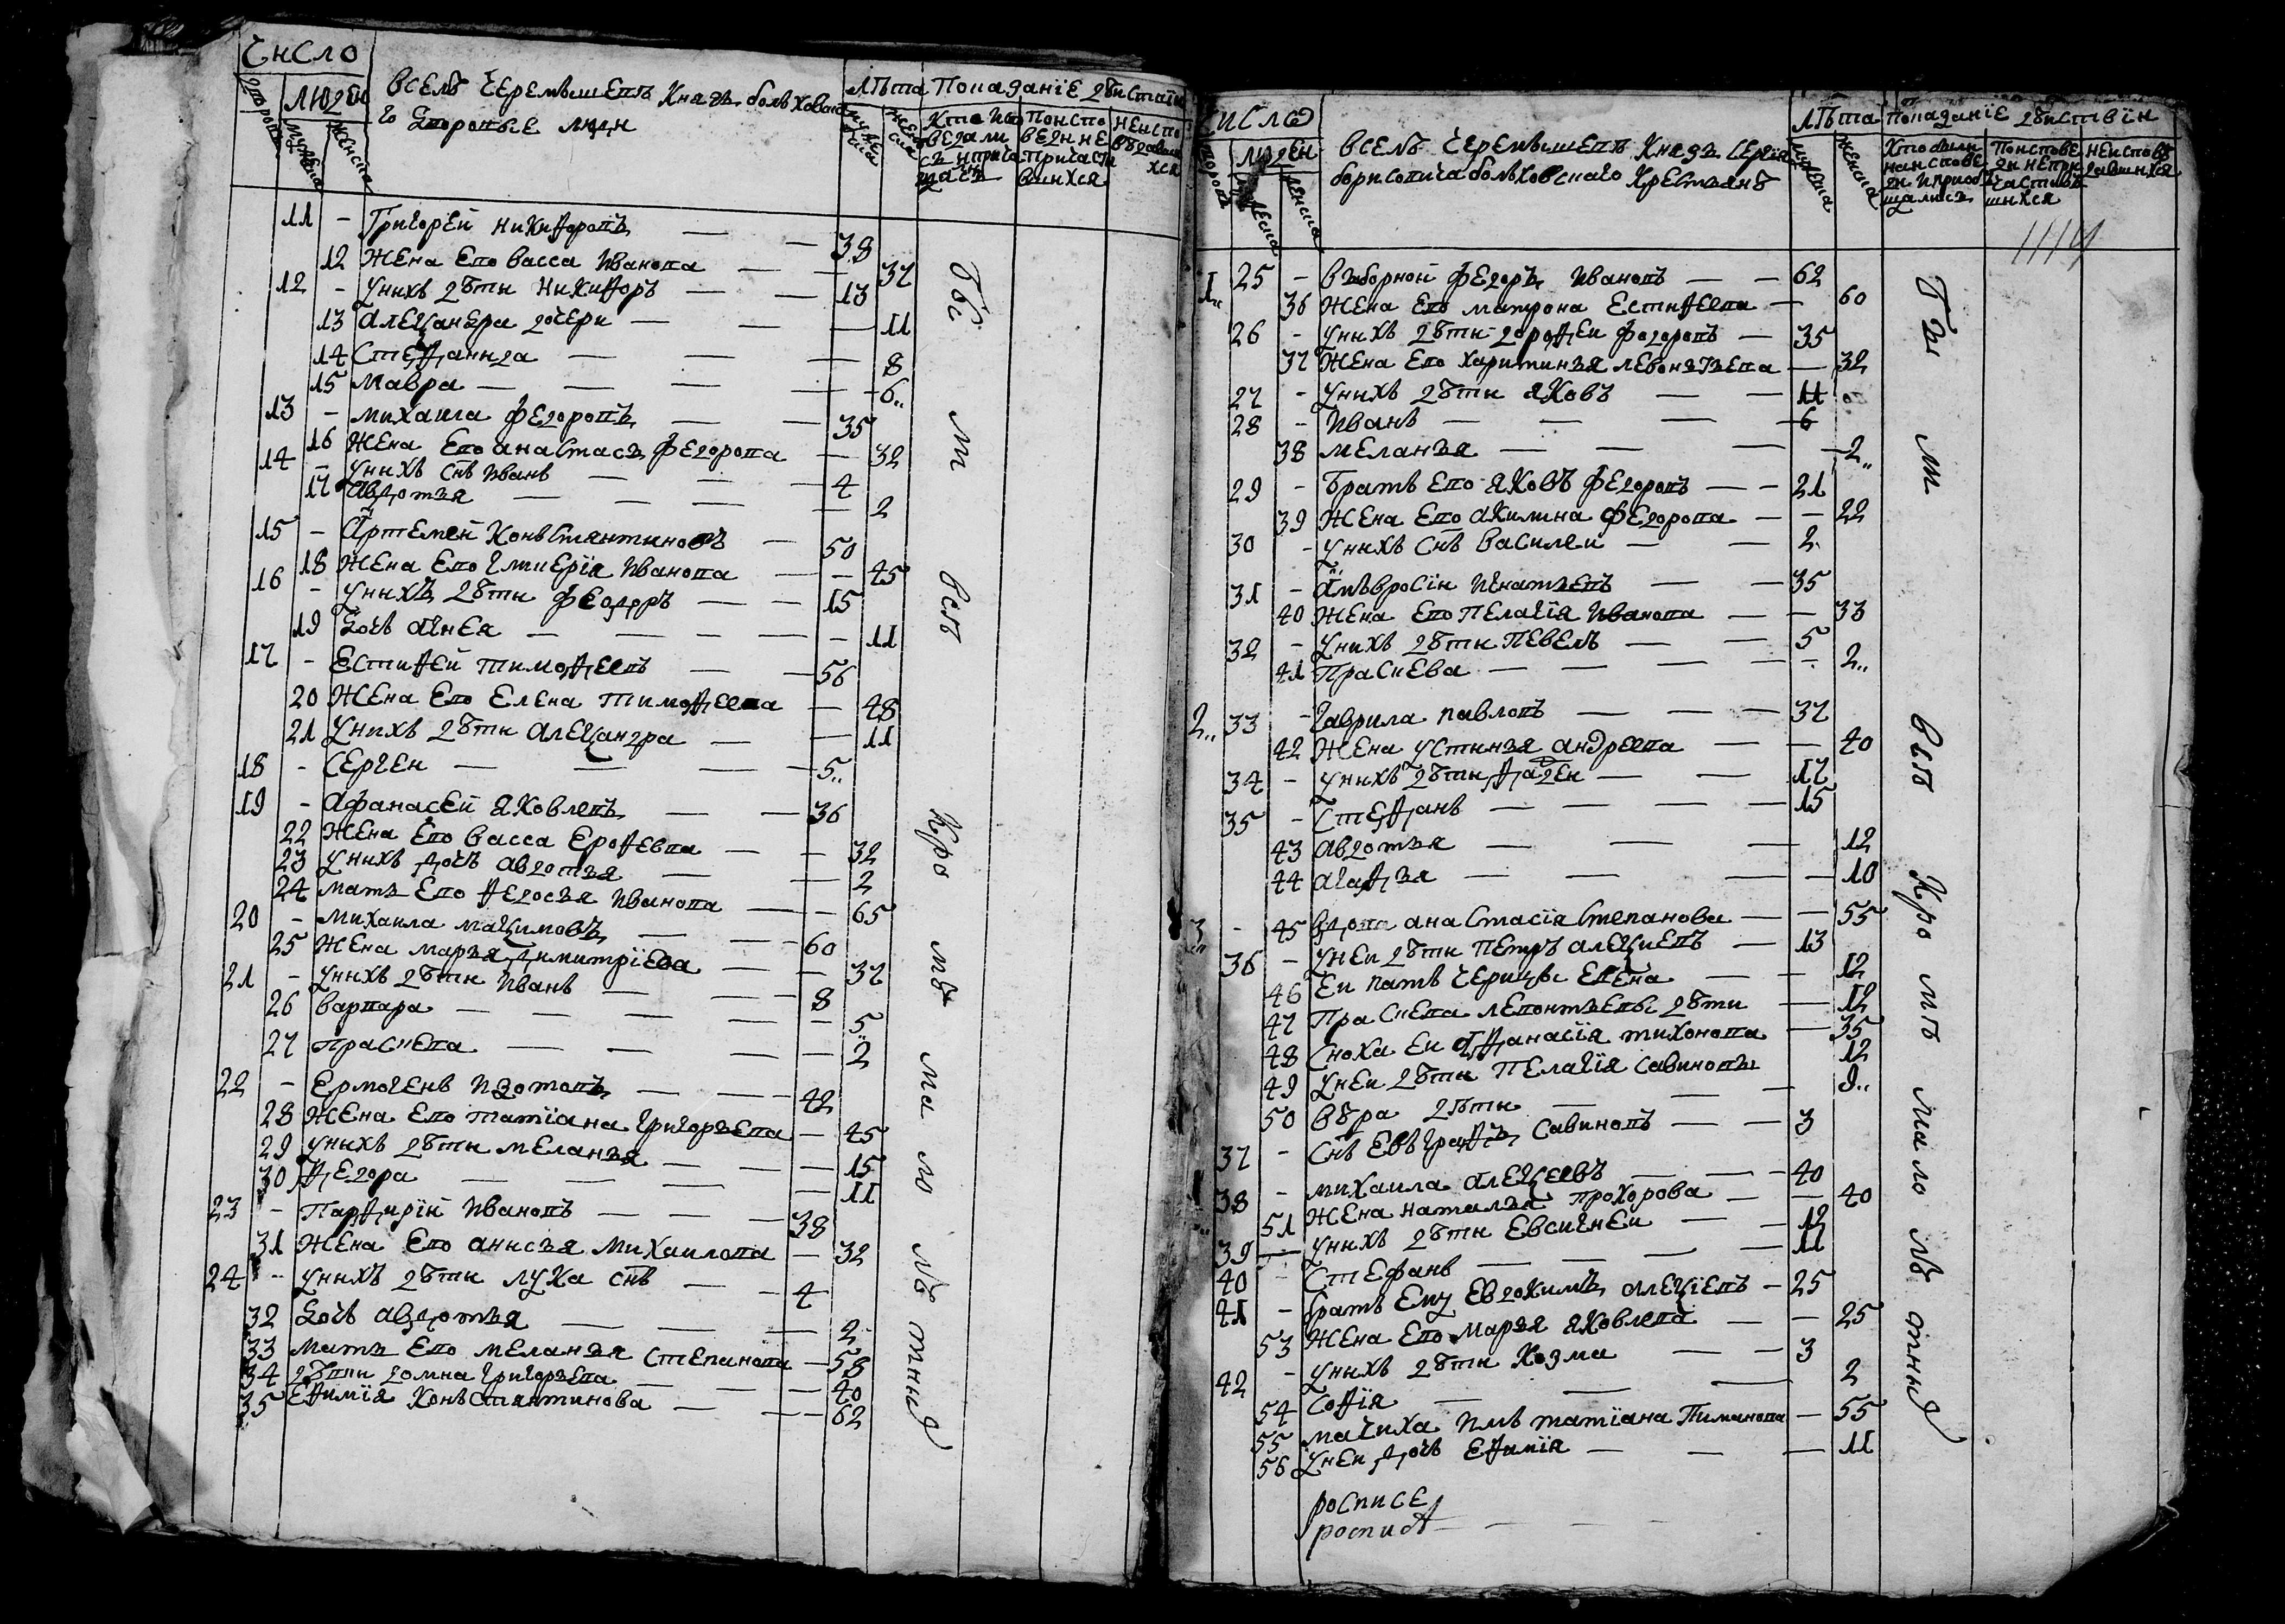 Число
дворовъ
людей
мужеска
женска
вселѣ черемышевѣ Князь болховска
го Дворовые люди
лѣта
мужеска
женска
Показанїе дѣиствїи
Кто испо
ведали
сь иприча
щась
Поиспо
ведине
причасти
вшихся
Неиспо
вѣдавши
хся
11 - Григореи никифоровъ — — 38
12 Жена Ево васса Иванова — — 37
12 - Унихъ дѣти Никифоръ — — 13
13 Алеѯандра дочери — — — 11
14 Стефанида — — — 8
15 Мавра — — — 6
13 - михаила федоровъ — — 35
16 Жена Ево анастась федорова — 32
14 - Унихъ снъ Иванъ — — — 4
17 Авдотья — — — 2
15 - Артемей Константиновъ — 50
18 Жена Ево гликерїя Иванова — — 45
16 - Унихъ дѣти феодоръ — — 15
19 Дочь агнея — — — — 11
17 - Естифеи тимофеевъ — — 56
20 Жена Ево Елена тимофеева — 48
21 Унихъ дѣти Алеѯандра — — 11
18 - Сергеи — — — — 5
19 - Афанасеи яковлевъ — — 36
22 Жена Ево васса Ерофевна — — 32
23 Унихъ дочь авдотья — — 2
24 мать Ево федосья Иванова — — 65
20 - михаила маѯимовъ — — 60
25 Жена марья димитрїева — — 37
21 - Унихъ дѣти Иванъ — — — 8
26 варвара — — — — — 5
27 прасковa — — — — 2
22 - Ермогенъ Изотовъ — — — 42
28 Жена Ево татїана григорьева — 45
29 Унихъ дѣти меланья — — — 15
30 федора — — — — 11
23 - Парфирїи Ивановъ — — — 38
31 Жена Ево анисья михаилова — 32
24 - Унихъ дѣти лука снъ — — 4
32 Дочь авдотья — — — 2
33 мать Ево меланья степанова — 58
34 дѣти домна григорьева — — — 40
35 Ефимїя Константинова — — — 62
Обоимъ всѣ Кромѣ малолѣтнихъ
Число
дворовъ
людеи
мужеска
женска
вселѣ черемышевѣ Князь сергїя
борисовича болховскаго Крестьянѣ
лѣта
мужеска
женска
показанїе дѣиствїи
Ктобыли
наиспове
ди иприоб
щались
Поиспове
ди непри
частив
шихся
неисповѣ
давшихся
1 25 - выборной федоръ Ивановъ — — 62
36 Жена Ево матрона Естифеева — 60
26 - Унихъ дѣти дорофеи федоровъ — 35
37 Жена Ево харитинья левонтьева — 32
27 - Унихъ дѣти яковъ — — 11
28 - Иванъ — — — — 6
38 меланья — — — — 2
29 - братъ Ево яковъ федоровъ — — 21
39 Жена Ево акилина федорова — — 22
30 - Унихъ снъ василеи — — 2
31 - Амъвросїи игнатьевъ — — 35
40 Жена Ево пелагїя Иванова — — 33
32 - Унихъ дѣти певелъ — — 5
41 праскева — — — — — 2
2 33 - гаврила павловъ — — — 37
42 Жена устинья андреева — — 40
34 - Унихъ дѣти фадеи — — — 17
35 - Стефанъ — — — — 15
43 авдотья — — — 12
44 агафья — — — — 10
3 - 45 вдова анастасїя степанова — — 55
36 - Унеи дѣти петръ алеѯиевъ — 13
46 Еи Елена — — 12
47 праскева левонтьевы дѣти — 12
48 сноха еи афанасїя тихонова — 35
49 Унеи дѣти пелагїя савиновы 12
50 вѣра дѣти — — — 9
37 - снъ Евъграфъ савиновъ — — 3
38 - михаила алеѯеевъ — — — 40
51 Жена наталья прохорова — — 40
39 — Унихъ дѣти Евсигнеи — — 12
40 - стефанъ — — — — 11
41 - братъ Ему Евдокимъ алеѯїевъ — 25
53 Жена Ево марья яковлева — — 25
42 - Унихъ дѣти козма — — 3
54 Софїя — — — 2
55 мачиха имъ татїана — 55
56 Унеи дочь Ефимїя — — — 11
Бы всѣ Кромѣ малолѣтнихъ
росписе